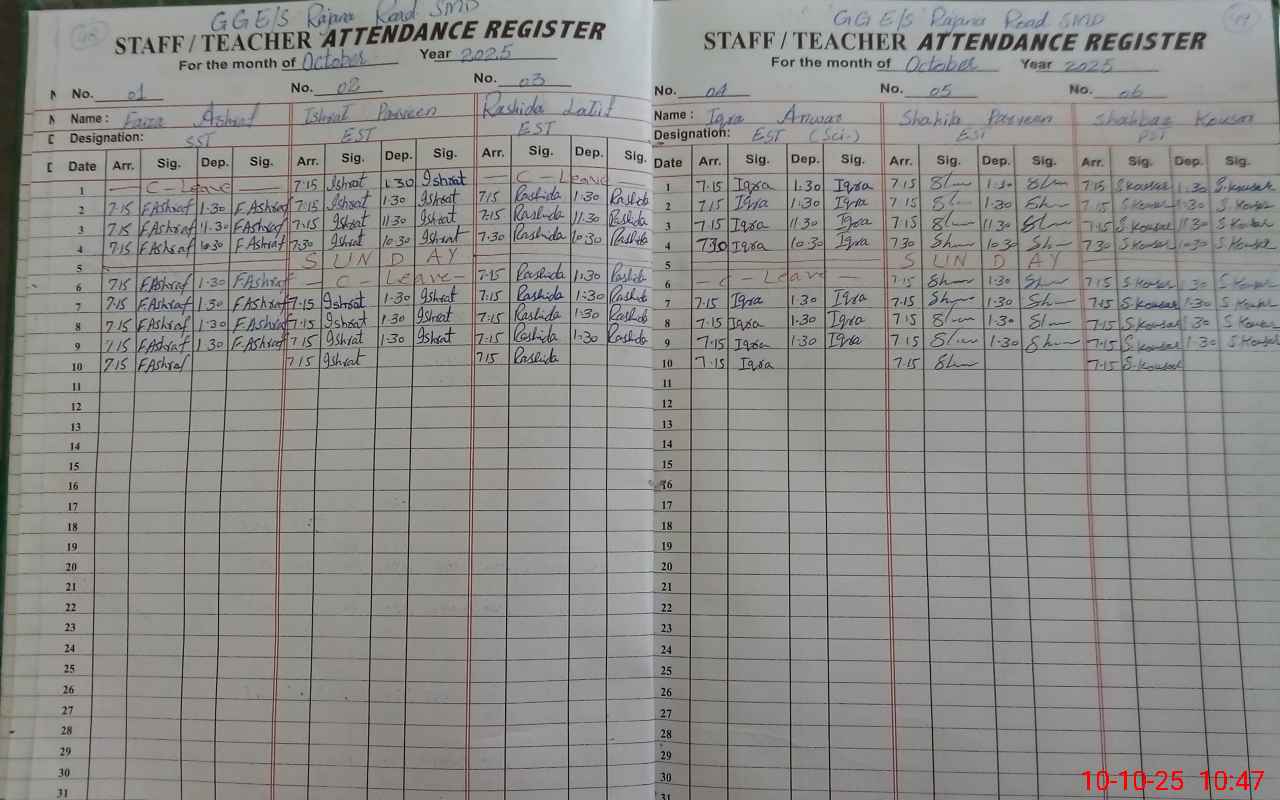 48
GGE/S Rajana Road SMD
STAFF / TEACHER ATTENDANCE REGISTER
For the month of October Year 2025
No. 01 No. 02 No. 03
Name : Faiza Ashraf Ishrat Parveen Rashida Latif
Designation: SST EST EST
Date Arr. Sig. Dep. Sig. Arr. Sig. Dep. Sig. Arr. Sig. Dep. Sig.
1 C-Leave 7:15 Ishrat 1:30 Ishrat C-Leave
2 7:15 F.Ashraf 1:30 F.Ashraf 7:15 Ishrat 1:30 Ishrat 7:15 Rashida 1:30 Rashida
3 7:15 F.Ashraf 11:30 F.Ashraf 7:15 Ishrat 11:30 Ishrat 7:15 Rashida 11:30 Rashida
4 7:15 F.Ashraf 10:30 F.Ashraf 7:30 Ishrat 10:30 Ishrat 7:30 Rashida 10:30 Rashida
5 SUNDAY
6 7:15 F.Ashraf 1:30 F.Ashraf C-Leave 7:15 Rashida 1:30 Rashida
7 7:15 F.Ashraf 1:30 F.Ashraf 7:15 Ishrat 1:30 Ishrat 7:15 Rashida 1:30 Rashida
8 7:15 F.Ashraf 1:30 F.Ashraf 7:15 Ishrat 1:30 Ishrat 7:15 Rashida 1:30 Rashida
9 7:15 F.Ashraf 1:30 F.Ashraf 7:15 Ishrat 1:30 Ishrat 7:15 Rashida 1:30 Rashida
10 7:15 F.Ashraf 7:15 Ishrat 7:15 Rashida
11
12
13
14
15
16
17
18
19
20
21
22
23
24
25
26
27
28
29
30
31
49
GGE/S Rajana Road SMD
STAFF / TEACHER ATTENDANCE REGISTER
For the month of October Year 2025
No. 04 No. 05 No. 06
Name : Iqra Anwar Shahila Parveen Shahbaz Kousar
Designation: EST (Sci-) EST PST
Date Arr. Sig. Dep. Sig. Arr. Sig. Dep. Sig. Arr. Sig. Dep. Sig.
1 7:15 Iqra 1:30 Iqra 7:15 1:30 7:15 S.kousar 1:30 S.kousar
2 7:15 Iqra 1:30 Iqra 7:15 1:30 7:15 S.kousar 1:30 S.kousar
3 7:15 Iqra 11:30 Iqra 7:15 11:30 7:15 S.kousar 11:30 S.kousar
4 7:30 Iqra 10:30 Iqra 7:30 10:30 7:30 S.kousar 10:30 S.kousar
5 SUNDAY
6 C-Leave 7:15 1:30 7:15 S.kousar 1:30 S.kousar
7 7:15 Iqra 1:30 Iqra 7:15 1:30 7:15 S.kousar 1:30 S.kousar
8 7:15 Iqra 1:30 Iqra 7:15 1:30 7:15 S.kousar 1:30 S.kousar
9 7:15 Iqra 1:30 Iqra 7:15 1:30 7:15 S.kousar 1:30 S.kousar
10 7:15 Iqra 7:15 7:15 S.kousar
11
12
13
14
15
16
17
18
19
20
21
22
23
24
25
26
27
28
29
30
31
10-10-25 10:47